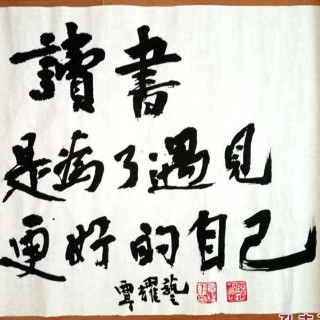 讀書
是為了遇見
更好的自己
覃耀藝